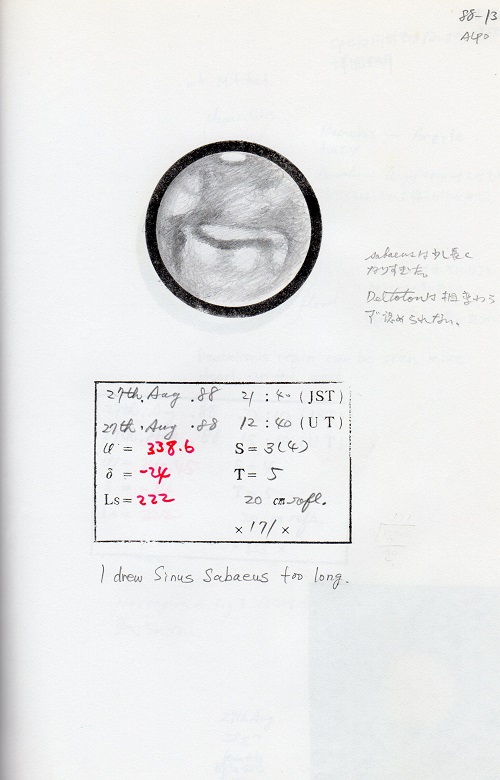 88-13
ALPO
sabaeusは少し長く
なりすぎた。
Deltotonは相変わら
ず認められない。
27th. Aug .88 21 : 40 (JST)
27th. Aug .88 12 : 40 (UT)
ω = 338.6 S = 3(4)
δ = -24 T = 5
Ls = 222 20 cm refl.
× 171 ×
I drew Sinus Sabaeus too long.